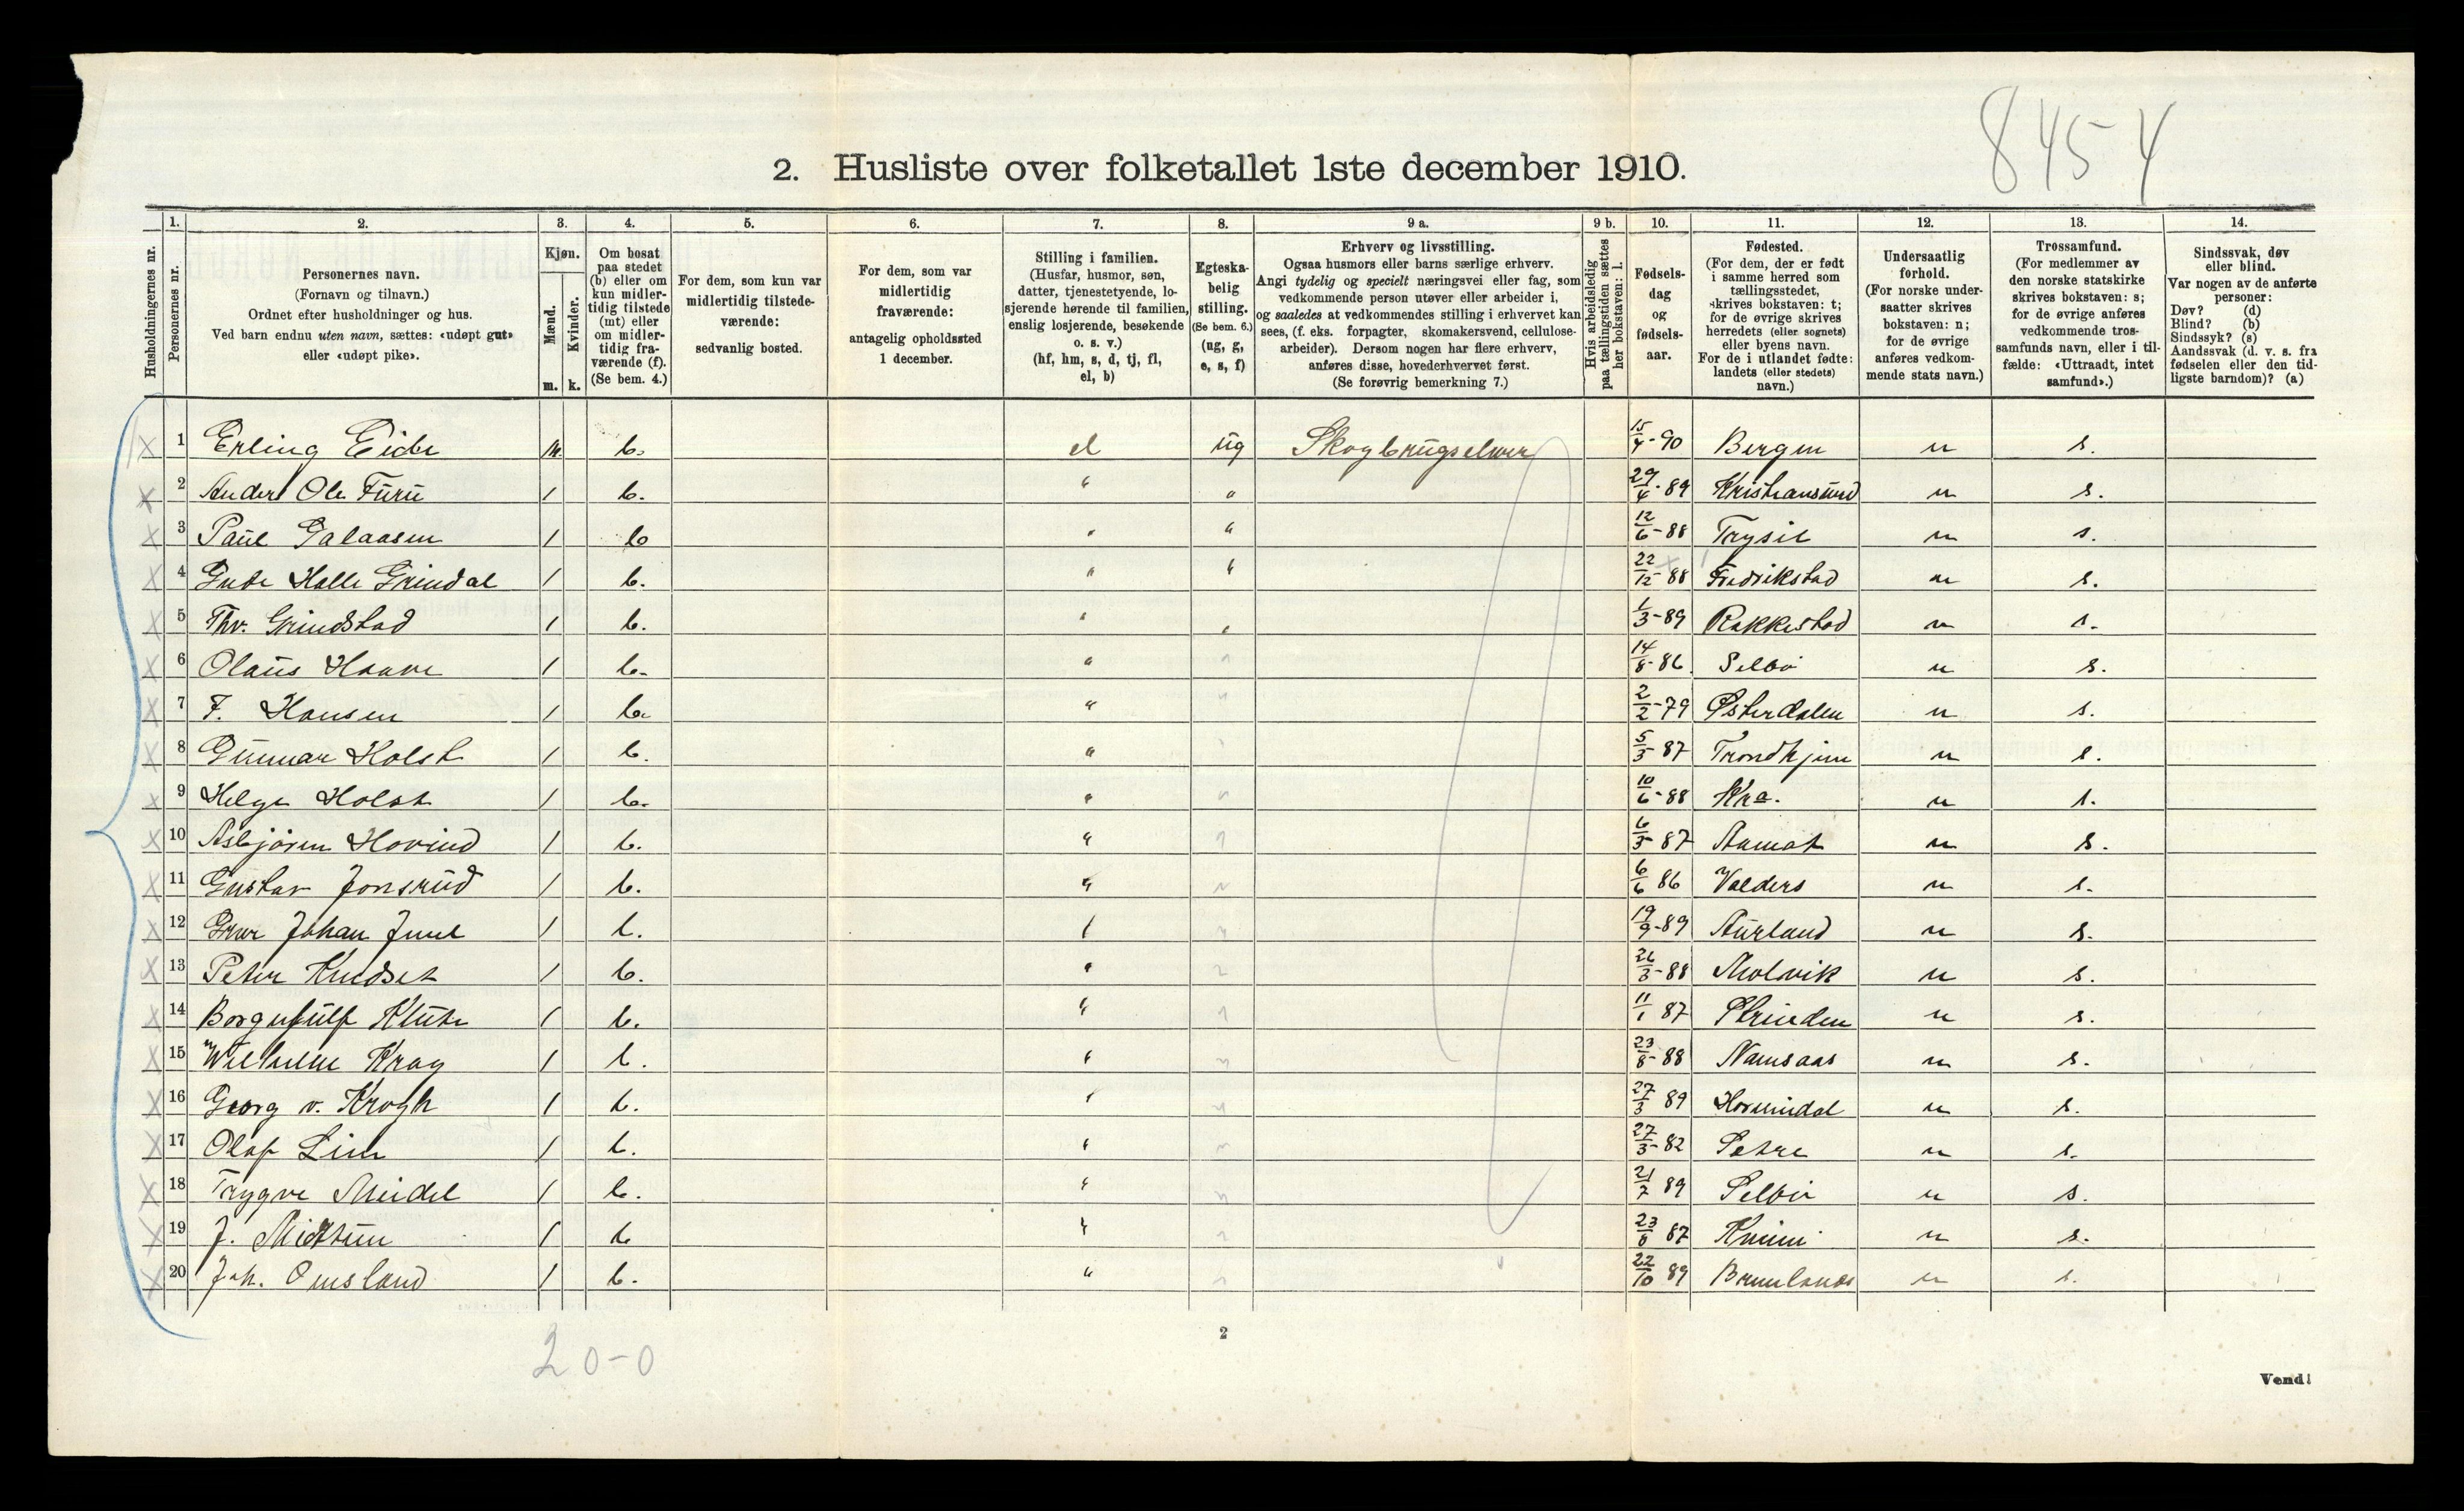 8454
2. Husliste over folketallet 1ste december 1910.
Husholdningernes nr.
1. Personernes nr.
2. Personernes navn.
(Fornavn og tilnavn.)
Ordnet efter husholdninger og hus.
Ved barn endnu uten navn, sættes: «udøpt gut»
eller «udøpt pike».
3. Kjøn.
Mænd. m.
Kvinder. k.
4. Om bosat
paa stedet
(b) eller om
kun midler-
tidig tilstede
(mt) eller
om midler-
tidig fra-
værende (f).
(Se bem. 4.)
5. For dem, som kun var
midlertidig tilstede-
værende:
sedvanlig bosted.
6. For dem, som var
midlertidig
fraværende:
antagelig opholdssted
1 december.
7. Stilling i familien.
(Husfar, husmor, søn,
datter, tjenestetyende, lo-
sjerende hørende til familien,
enslig losjerende, besøkende
o. s. v.)
(hf, hm, s, d, tj, fl,
el, b)
8. Egteska-
belig
stilling.
(Se bem. 6.)
(ug, g,
e, s, f)
9 a. Erhverv og livsstilling.
Ogsaa husmors eller barns særlige erhverv.
Angi tydelig og specielt næringsvei eller fag, som
vedkommende person utøver eller arbeider i,
og saaledes at vedkommendes stilling i erhvervet kan
sees, (f. eks. forpagter, skomakersvend, cellulose-
arbeider). Dersom nogen har flere erhverv,
anføres disse, hovederhvervet først.
(Se forøvrig bemerkning 7.)
9 b. Hvis arbeidsledig
paa tællingstiden sættes
her bokstaven: l.
10. Fødsels-
dag
og
fødsels-
aar.
11. Fødested.
(For dem, der er født
i samme herred som
tællingsstedet,
skrives bokstaven: t;
for de øvrige skrives
herredets (eller sognets)
eller byens navn.
For de i utlandet fødte:
landets (eller stedets)
navn.)
12. Undersaatlig
forhold.
(For norske under-
saatter skrives
bokstaven: n;
for de øvrige
anføres vedkom-
mende stats navn.)
13. Trossamfund.
(For medlemmer av
den norske statskirke
skrives bokstaven: s;
for de øvrige anføres
vedkommende tros-
samfunds navn, eller i til-
fælde: «Uttraadt, intet
samfund».)
14. Sindssvak, døv
eller blind.
Var nogen av de anførte
personer:
Døv? (d)
Blind? (b)
Sindssyk? (s)
Aandssvak (d. v. s. fra
fødselen eller den tid-
ligste barndom)? (a)
X 1 Erling Eide m. b. el ug Skogbrugselever 15/4-90 Bergen n s.
X 2 Anders Ole Furu 1 b. " " 29/4-89 Kristiansund n s.
X 3 Paul Galaasen 1 b " " 12/6-88 Trysil n s.
X 4 Gude Halle Grindal 1 b. " " 22/12-88 Fredrikstad n s.
X 5 Thv. Grindstad 1 b. " " 1/3-89 Rakkestad n s.
X 6 Olaus Haave 1 b. " " 14/8-86. Selbø n s.
X 7 F. Hansen 1 b. " " 2/2-79 Østerdalen n s.
X 8 Gunnar Holst 1 b. " " 5/5-87 Trondhjem n s.
X 9 Helge Holst 1 b. " " 10/6-88 Kra. n s.
X 10 Asbjørn Hovind 1 b. " " 6/5-87 Aamot n s.
X 11 Gustav Jonsrud 1 b. " " 6/6 86 Valders n s.
X 12 Johan Juul 1 b. " " 19/9-89 Aurland n s.
X 13 Peter 1 b. " " 26/3-88 n s.
X 14 1 b. " " 11/1 87 Strinden n s.
X 15 Wilhelm Krag 1 b. " " 23/8-88 Namsaas n s.
X 16 Georg v. Krogh 1 b. " " 27/3 89 Hornindal n s.
X 17 Olaf Lien 1 b. " " 27/3-82 n s.
X 18 Trygve Meidel 1 b. " " 21/7 89 n s.
X 19 J. Midttun 1 b " " 23/8 87 n s.
X 20 Joh. Omsland 1 b. " " 22/10 89 Brunlanes n s.
20-0
2
Vend!